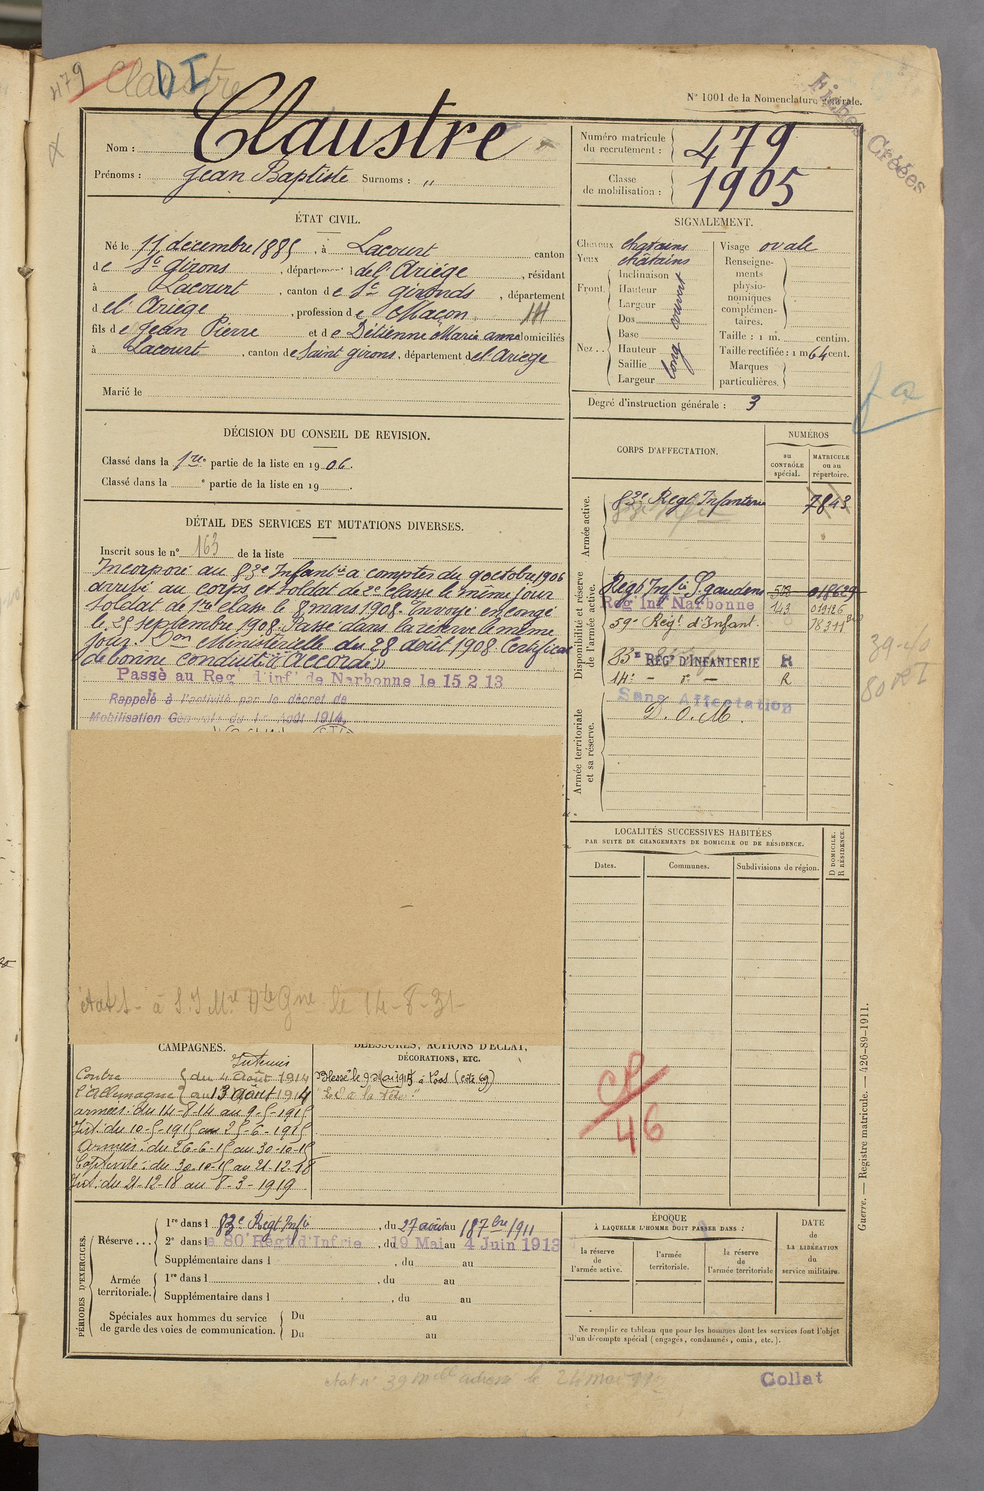 479 Claustre
DI
N° 1001 de la Nomenclature générale.
Fiches Créées
Nom : Claustre
Prénoms : Jean Baptiste Surnoms : "
Numéro matricule du recrutement : 479
Classe de mobilisation : 1905
ÉTAT CIVIL.
Né le 11 décembre 1885, à Lacourt canton
de St Girons, département de l'Ariége, résidant
à Lacourt, canton de St Gironds, département
del Ariége, profession de Maçon
fils de Jean Pierre et de Détienne Marie anne domiciliés
à Lacourt, canton de Saint girons, département del Ariege
Marié le
SIGNALEMENT.
Cheveux chatains
Yeux châtains
Front. Inclinaison
Hauteur
Largeur
couvert
Nez.. Dos
Base
Hauteur
Saillie
Largeur
long
Visage ovale
Renseignements physionomiques complémentaires.
Taille : 1 m. centim.
Taille rectifiée : 1 m 64 cent.
Marques particulières.
Degré d'instruction générale : 3
DÉCISION DU CONSEIL DE REVISION.
Classé dans la 1re partie de la liste en 1906.
Classé dans la e partie de la liste en 19 .
DÉTAIL DES SERVICES ET MUTATIONS DIVERSES.
Inscrit sous le n° 163 de la liste
Incorporé au 83e Infant ie a compter du 9 octobre 1906
arrivé au corps, et soldat de 2e classe le même jour
Soldat de 1re classe le 8 mars 1908. Envoyé en congé
le 25 septembre 1908. Passé dans la réserve le même
jour. Don Ministérielle du 28 août 1908. Certificat
de bonne conduite "Accordé"
Passé au Reg' d'inf' de Narbonne le 15 2 13
Rappelé à l'activité par le décret de
Mobilisation Générale du 1er Août 1914.
CORPS D'AFFECTATION.
NUMÉROS
au CONTRÔLE spécial.
MATRICULE ou au répertoire.
Armée active.
83e Regt Infanterie 7843
Disponibilité et réserve de l'armée active.
Régt Infie S. gaudens 503 015629
Reg Inf Narbonne 143
59e Régt d'Infant.
83e REGT D'INFANTERIE R
14e - d° - R
Armée territoriale et sa réserve.
Sans Affectation
D. O. M.
39-40
80 RI
LOCALITÉS SUCCESSIVES HABITÉES
PAR SUITE DE CHANGEMENTS DE DOMICILE OU DE RÉSIDENCE.
Dates. Communes. Subdivisions de région.
D DOMICILE. R RÉSIDENCE.
CP
46
le 14-8-31
CAMPAGNES.
Intérieur
Contre { du 4 Août 1914
l'Allemagne { au 13 août 1914
armées : du 14-8-14 au 9-5-1915
Int : du 10-5-1915 au 25-6-1915
Armées : du 26-6-15 au 30-10-15
Captivité : du 30-10-15 au 21-12-18
Int : du 21-12-18 au 8-3-1919
BLESSURES, ACTIONS D'ÉCLAT,
DÉCORATIONS, ETC.
Blessé le 9 Mai 1915 à Roas (cote 69)
PÉRIODES D'EXERCICES.
Réserve...
1re dans l 83e Regt Infie, du 27 août au 18 7bre 1911
2e dans l e 80e Régt d'Infrie, du 19 Mai au 4 Juin 1913
Supplémentaire dans l , du au
Armée territoriale.
1re dans l , du au
Supplémentaire dans l , du au
Spéciales aux hommes du service de garde des voies de communication.
Du au
Du au
ÉPOQUE
À LAQUELLE L'HOMME DOIT PASSER DANS :
la réserve de l'armée active.
l'armée territoriale.
la réserve de l'armée territoriale
DATE de LA LIBÉRATION du service militaire.
Ne remplir ce tableau que pour les hommes dont les services font l'objet
d'un décompte spécial (engagés, condamnés, omis, etc.).
Guerre. — Registre matricule. — 426-89-1911.
Collat